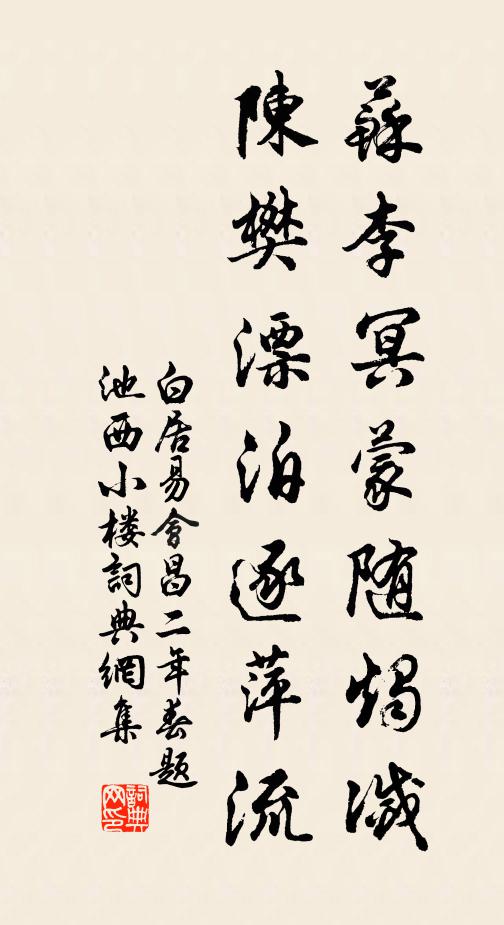 蘇李冥蒙随燭滅
陳樊漂泊逐萍流
白居易會昌二年春題
池西小楼詞典網集
詞典
网印